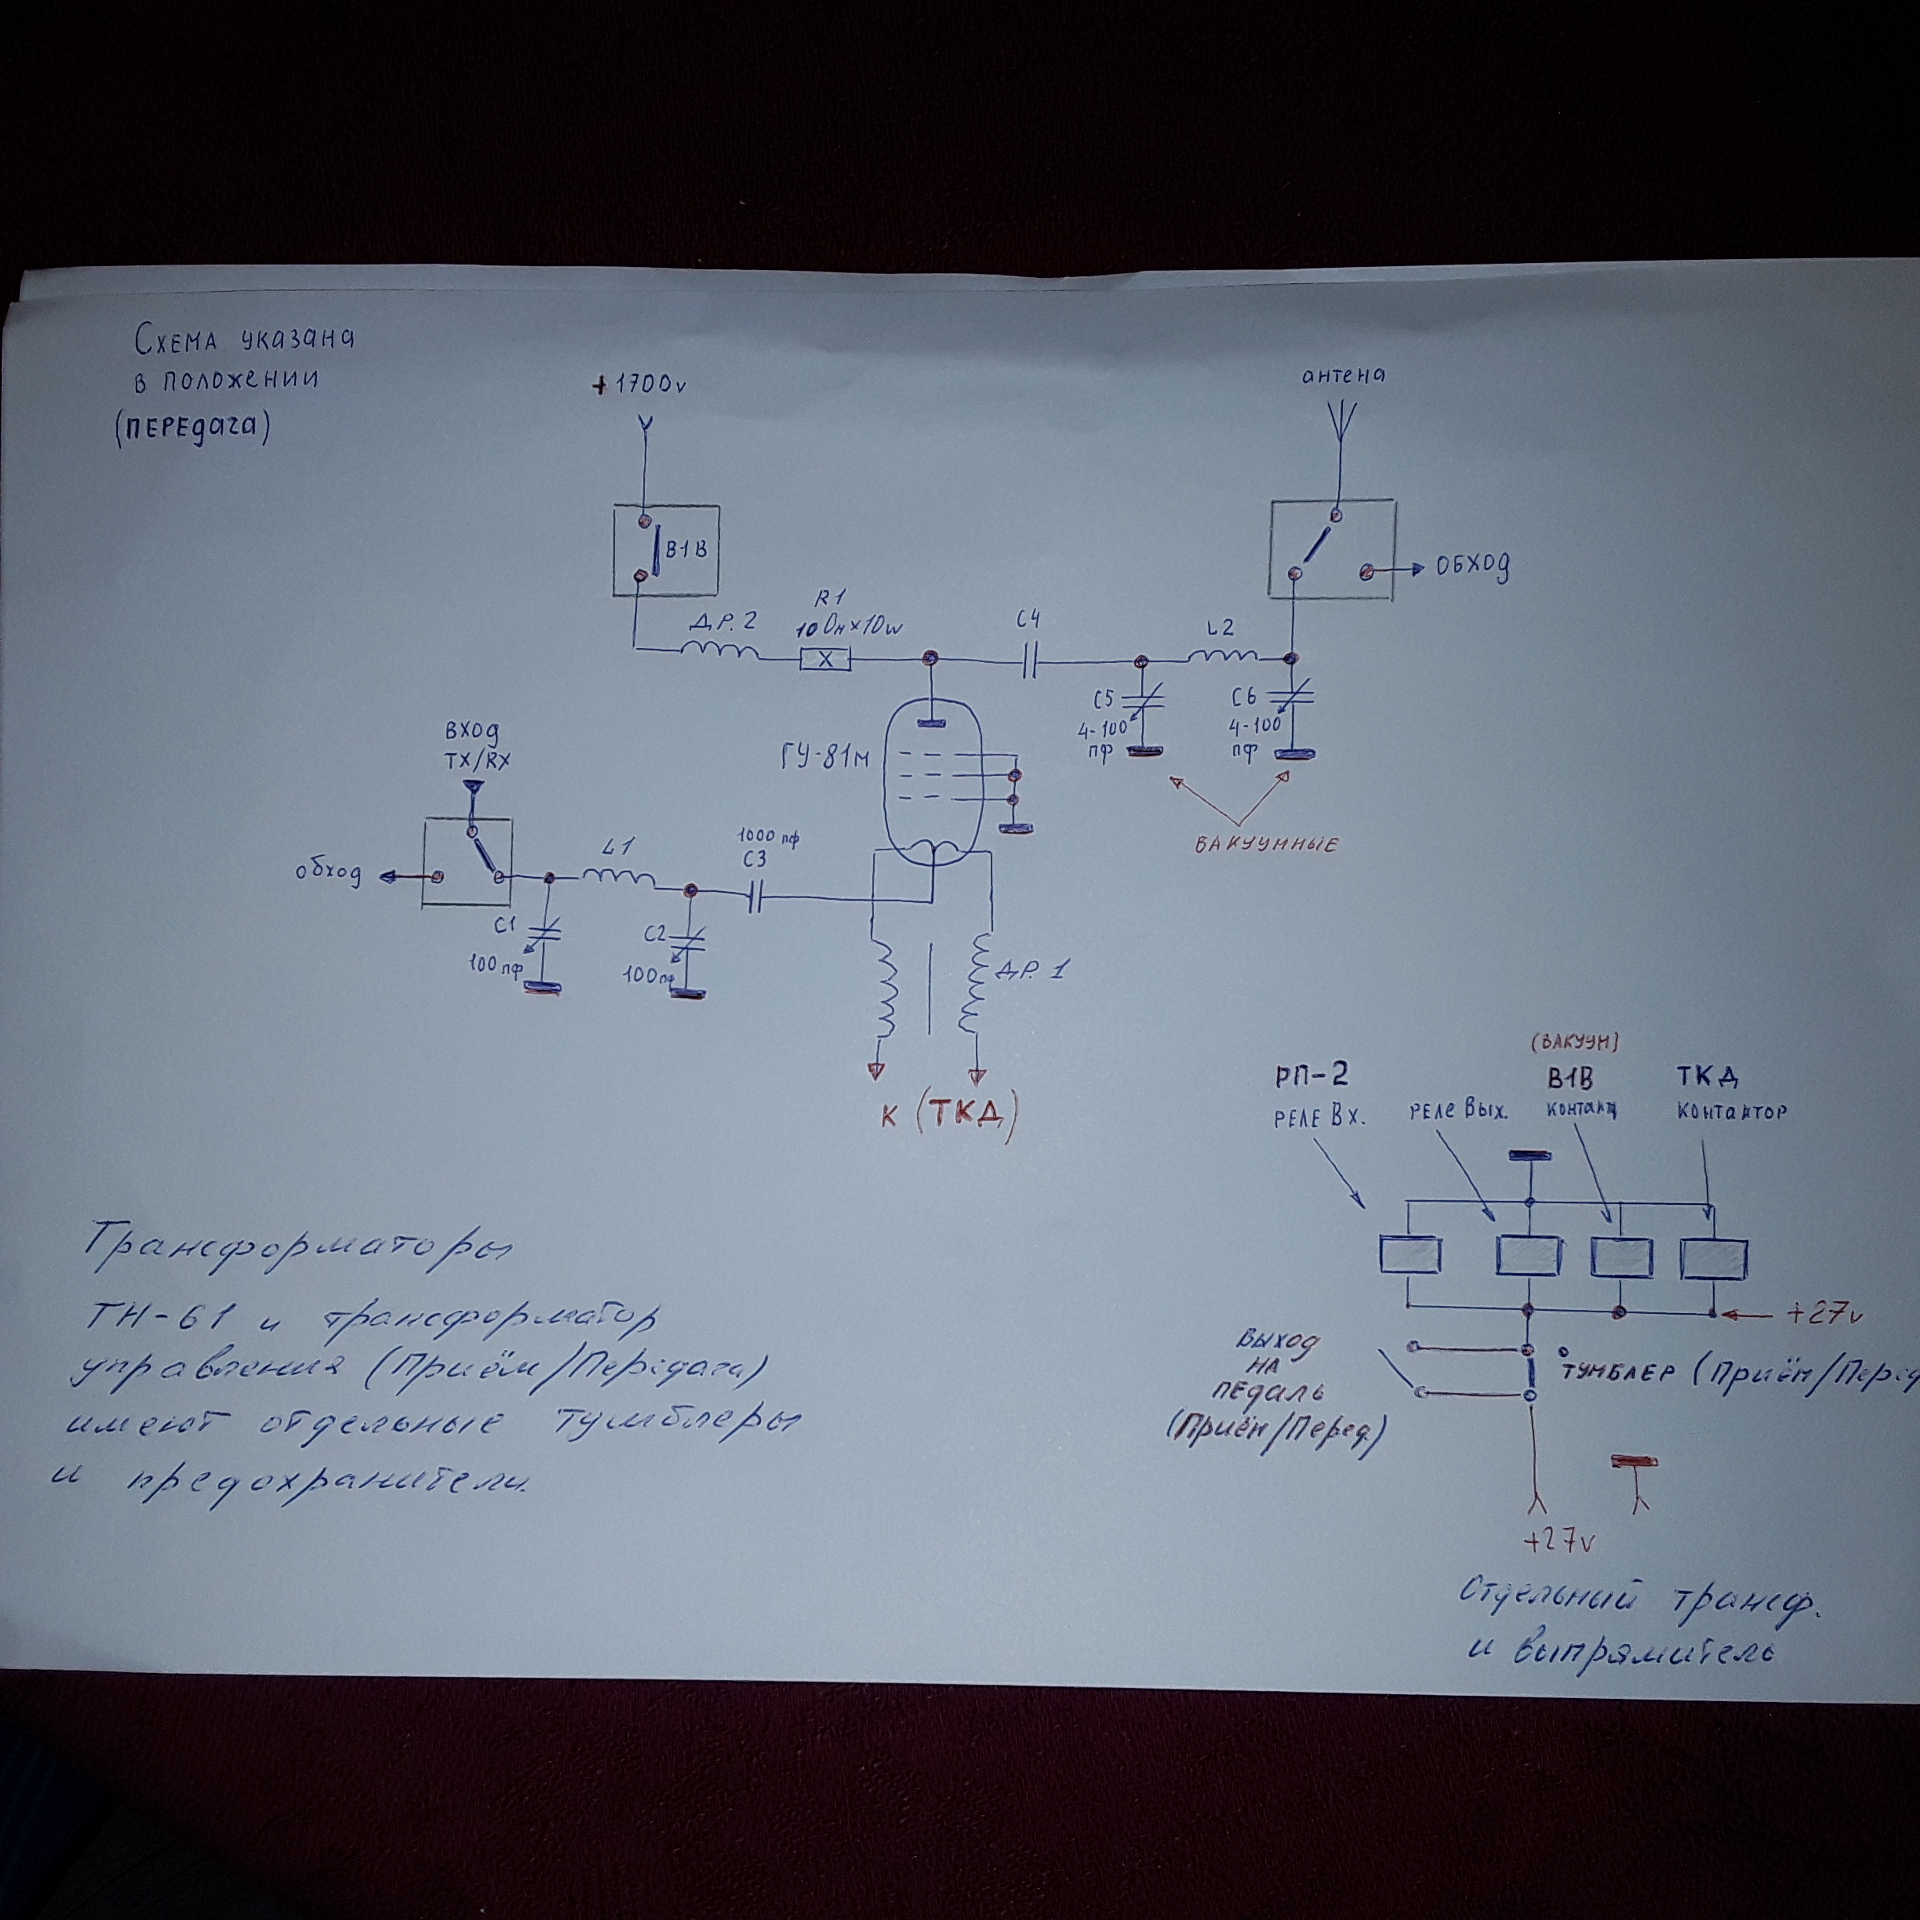 Схема указана
в положении
(ПЕРЕдача)
+1700v
антена
В1В
обход
ДР.2
R1
10 Ом×10w
С4
L2
С5
4-100
пф
С6
4-100
пф
ВАКУУМНЫЕ
ГУ-81м
вход
TX/RX
обход
L1
1000 пф
С3
С1
100 пф
С2
100 пф
ДР. 1
К (ТКД)
(ВАКУУМ)
РП-2
В1В
ТКД
РЕЛЕ Вх.
РЕЛЕ Вых.
контакт
контактор
+27v
Выход
НА
ПЕдаль
(Приём/Перед.)
ТУМБЛЕР (Приём/Перед
+27v
Отдельный трансф.
и выпрямитель
Трансформаторы
ТН-61 и трансформатор
управления (Приём/Передача)
имеют отдельные тумблеры
и предохранители.